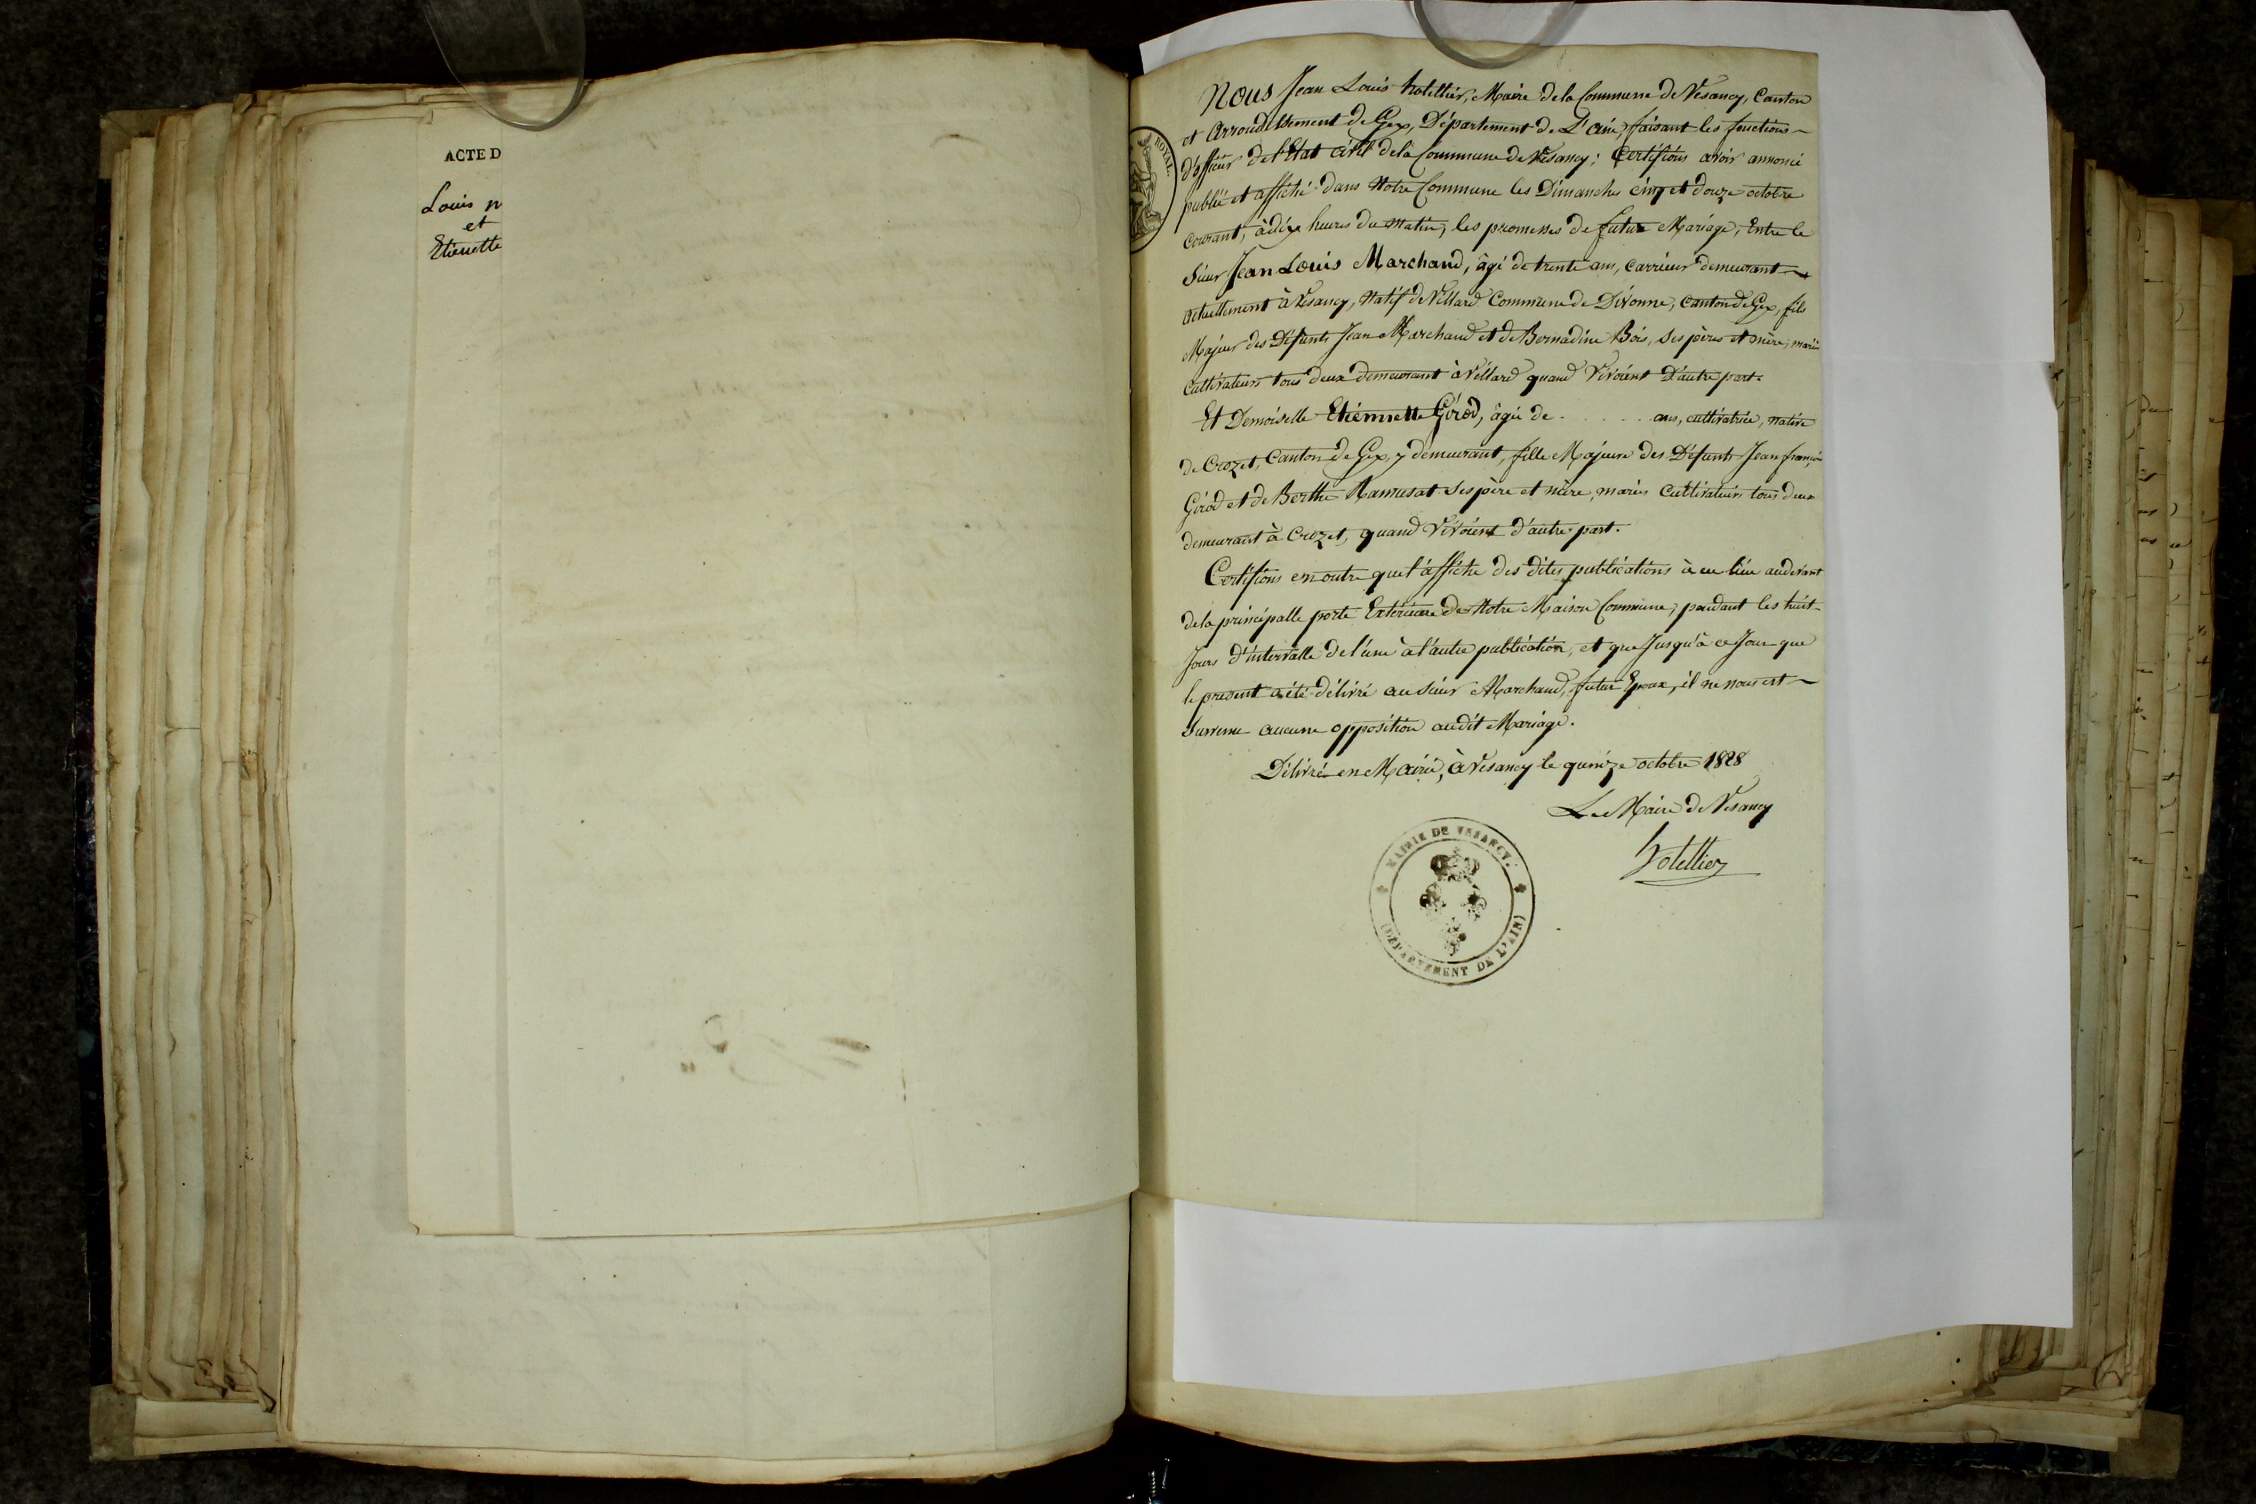 ACTE D
Louis n
et
Etienette
ROYAL
Nous Jean Louis hotellier, Maire de la Commune de Vesancy, Canton
et Arrondissement de Gex, Département de L'ain, faisant les fonctions
d'officier de l'Etat civil de la Commune de Vesancy; Certifions avoir annoncé
publié et affiché dans Notre Commune les Dimanches cinq et douze octobre
courant, à dix heures du matin, les promesses de futur Mariage, Entre le
Sieur Jean Louis Marchand, âgé de trente ans, carrieur demeurant
actuellement à Vesancy, Natif de Villard Commune de Divonne, canton de Gex, fils
Majeur des Défunts Jean Marchand et de Bernadine Bois, ses père et mère, mariés
cultivateurs tous deux demeurant à Villard quand Vivoient D'autre part.
Et Demoiselle Etiennette Girod, âgée de . . . . . ans, cultivatrice, native
de Crozet, Canton de Gex, y demeurant, fille Majeure des Défunts Jean françois
Girod et de Berthe Ramusat ses père et mère, mariés Cultivateurs tous deux
demeurant à Crozet, quand Vivoient d'autre part.
Certifions en outre que l'affiche des dites publications à eu lieu audevant
de la principalle porte Extérieure de Notre Maison Commune, pendant les huit
Jours d'intervalle de l'une à l'autre publication, et que Jusqu'à ce Jour que
le present a été délivré au sieur Marchand, futur Epoux, il ne nous est
survenu aucune opposition audit Mariage.
Délivré en Mairie, à Vesancy le quinze octobre 1828
Le Maire de Vesancy
hotellier
MAIRIE DE VESANCY.
(DÉPARTEMENT DE L'AIN)